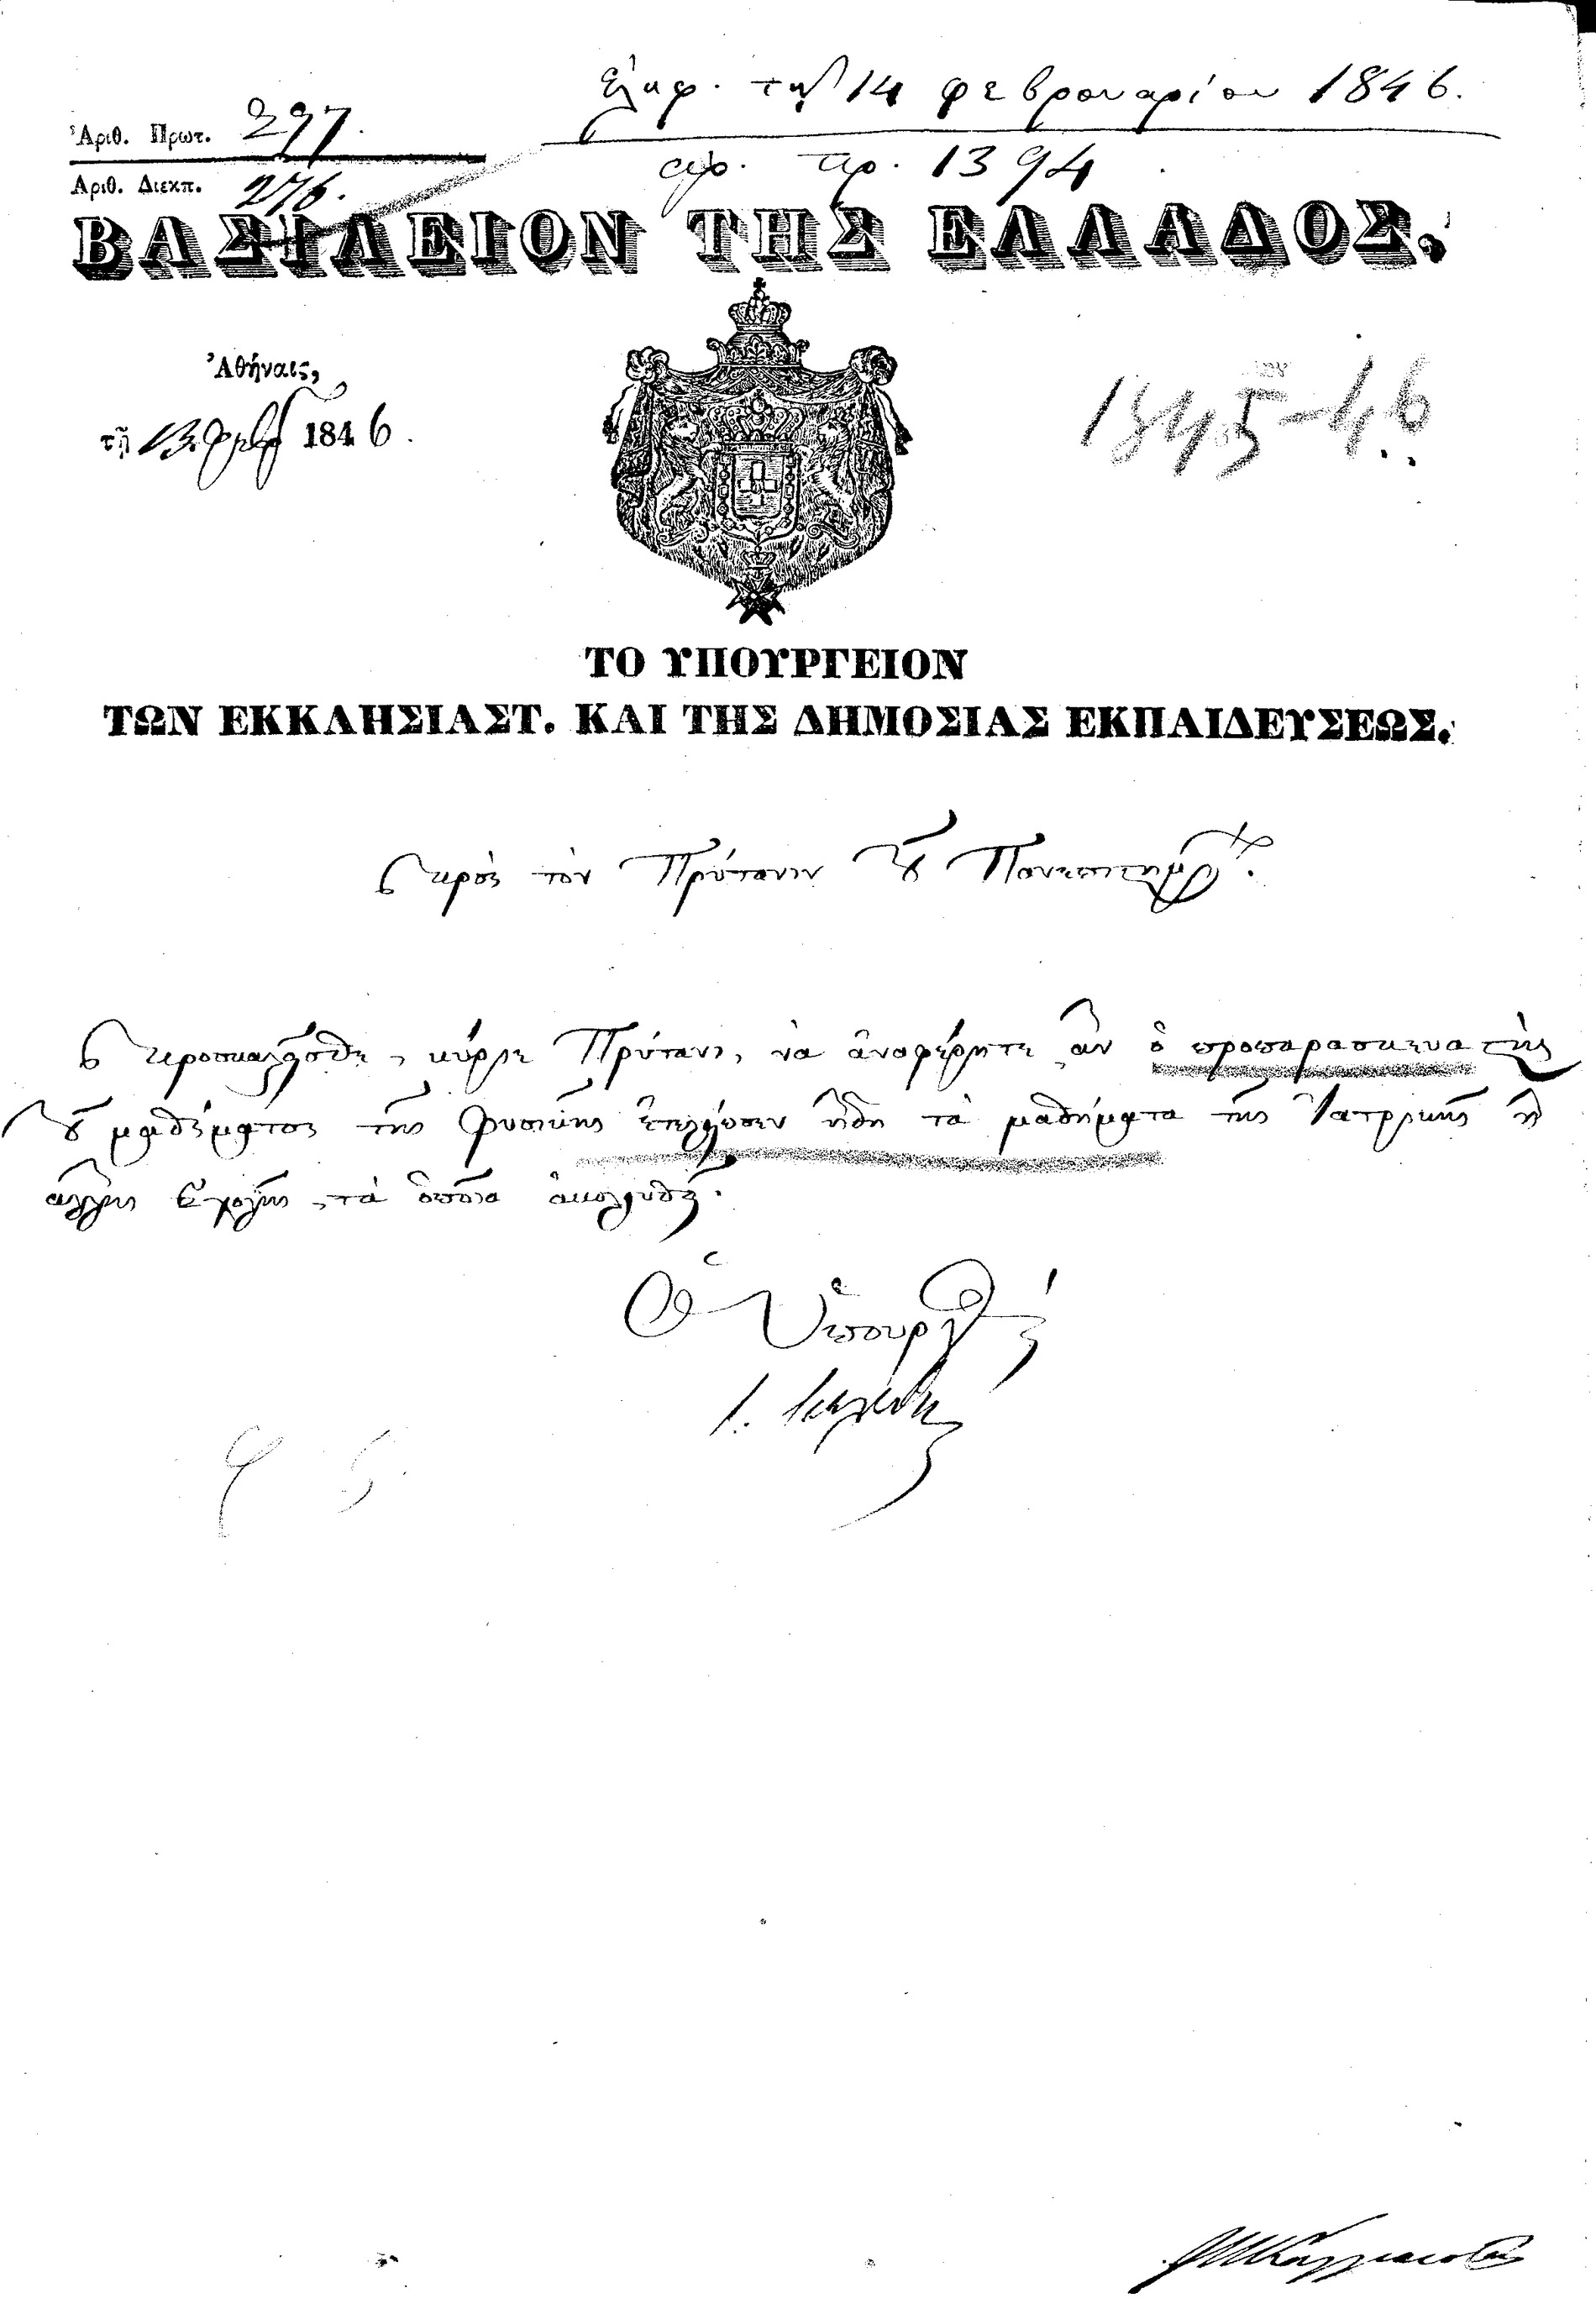 ἐλήφ. τῇ 14 φεβρουαρίου 1846.
Ἀριθ. Πρωτ. 297.
ἀρ. πρ. 1394
Ἀριθ. Διεκπ. 276.
ΒΑΣΙΛΕΙΟΝ ΤΗΣ ΕΛΛΑΔΟΣ,
Ἀθήναις,
τῇ 13 φεβρ 1846.
1845-46
ΤΟ ΥΠΟΥΡΓΕΙΟΝ
ΤΩΝ ΕΚΚΛΗΣΙΑΣΤ. ΚΑΙ ΤΗΣ ΔΗΜΟΣΙΑΣ ΕΚΠΑΙΔΕΥΣΕΩΣ.
πρὸς τὸν Πρύτανιν τοῦ Πανεπιστημίου.
Προσκαλεῖσθε, κύριε Πρύτανι, νὰ ἀναφέρητε ἂν ὁ προπαρασκευαστὴς
τοῦ μαθήματος τῆς Φυσικῆς ἐτελείωσεν ἤδη τὰ μαθήματα τῆς Ἰατρικῆς ἢ
ἄλλης Σχολῆς, τὰ ὁποῖα ἀκολουθεῖ.
Ὁ Ὑπουργός
Ι.